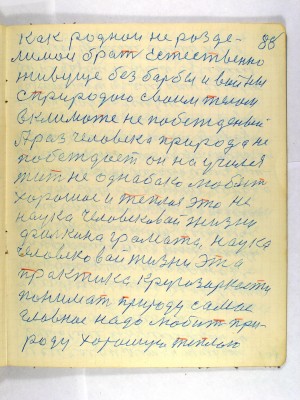 88
как родной не розде-
лимой брат Естественно
живуще без барбы и вайны
с природаю своим телом
в климоте не побежденый
А раз человека природа не
побеждает он научился
жит не однабако любит
хорошое и теплая это не
наука человековай жизни
грамата, наука
человековай жизни Эта
практика кругозаркасти
понимат природу самое
главное надо любит при-
роду хорошую теплаю